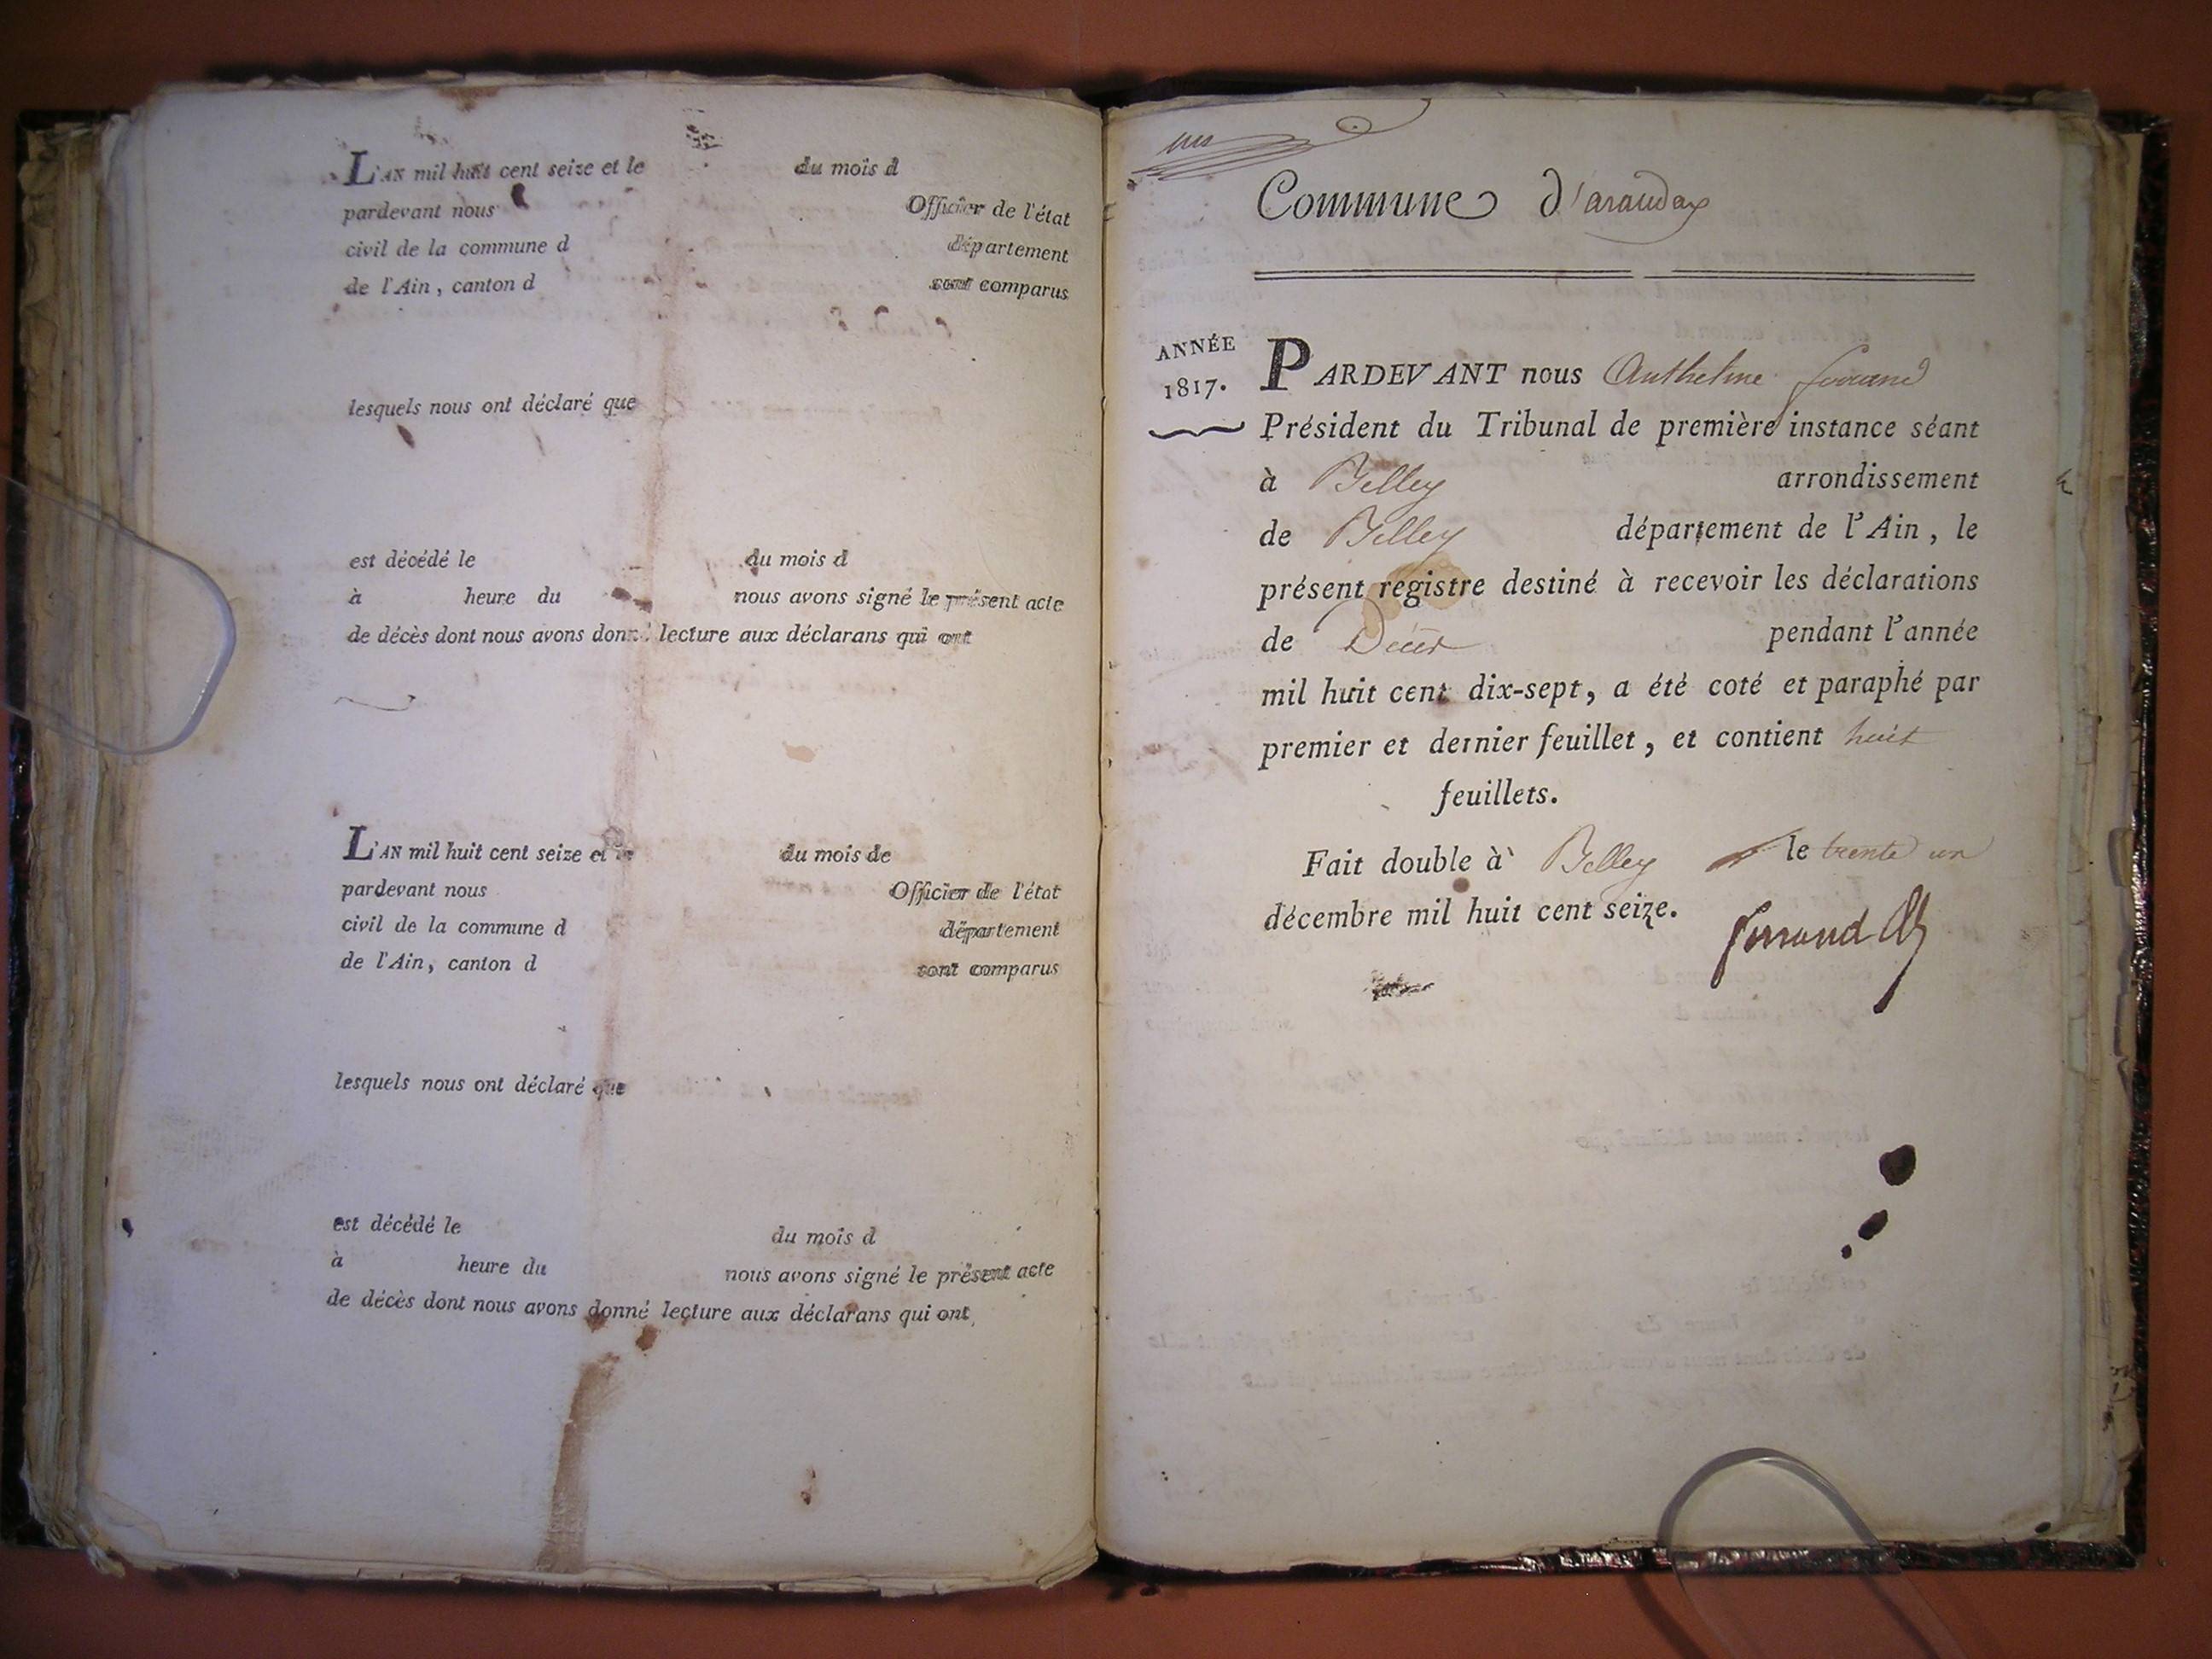 L'AN mil huit cent seize et le du mois d
pardevant nous Officier de l'état
civil de la commune d département
de l'Ain, canton d sont comparus
lesquels nous ont déclaré que
est décédé le du mois d
à heure du nous avons signé le présent acte
de décès dont nous avons donné lecture aux déclarans qui ont
L'AN mil huit cent seize et le du mois de
pardevant nous Officier de l'état
civil de la commune d département
de l'Ain, canton d sont comparus
lesquels nous ont déclaré que
est décédé le du mois d
à heure du nous avons signé le présent acte
de décès dont nous avons donné lecture aux déclarans qui ont
Commune d'arandas
ANNÉE
1817.
PARDEVANT nous Anthelme ferrand
Président du Tribunal de première instance séant
à Belley arrondissement
de Belley département de l'Ain, le
présent registre destiné à recevoir les déclarations
de Décès pendant l'année
mil huit cent dix-sept, a été coté et paraphé par
premier et dernier feuillet, et contient huit
feuillets.
Fait double à Belley le trente un
décembre mil huit cent seize.
ferrand